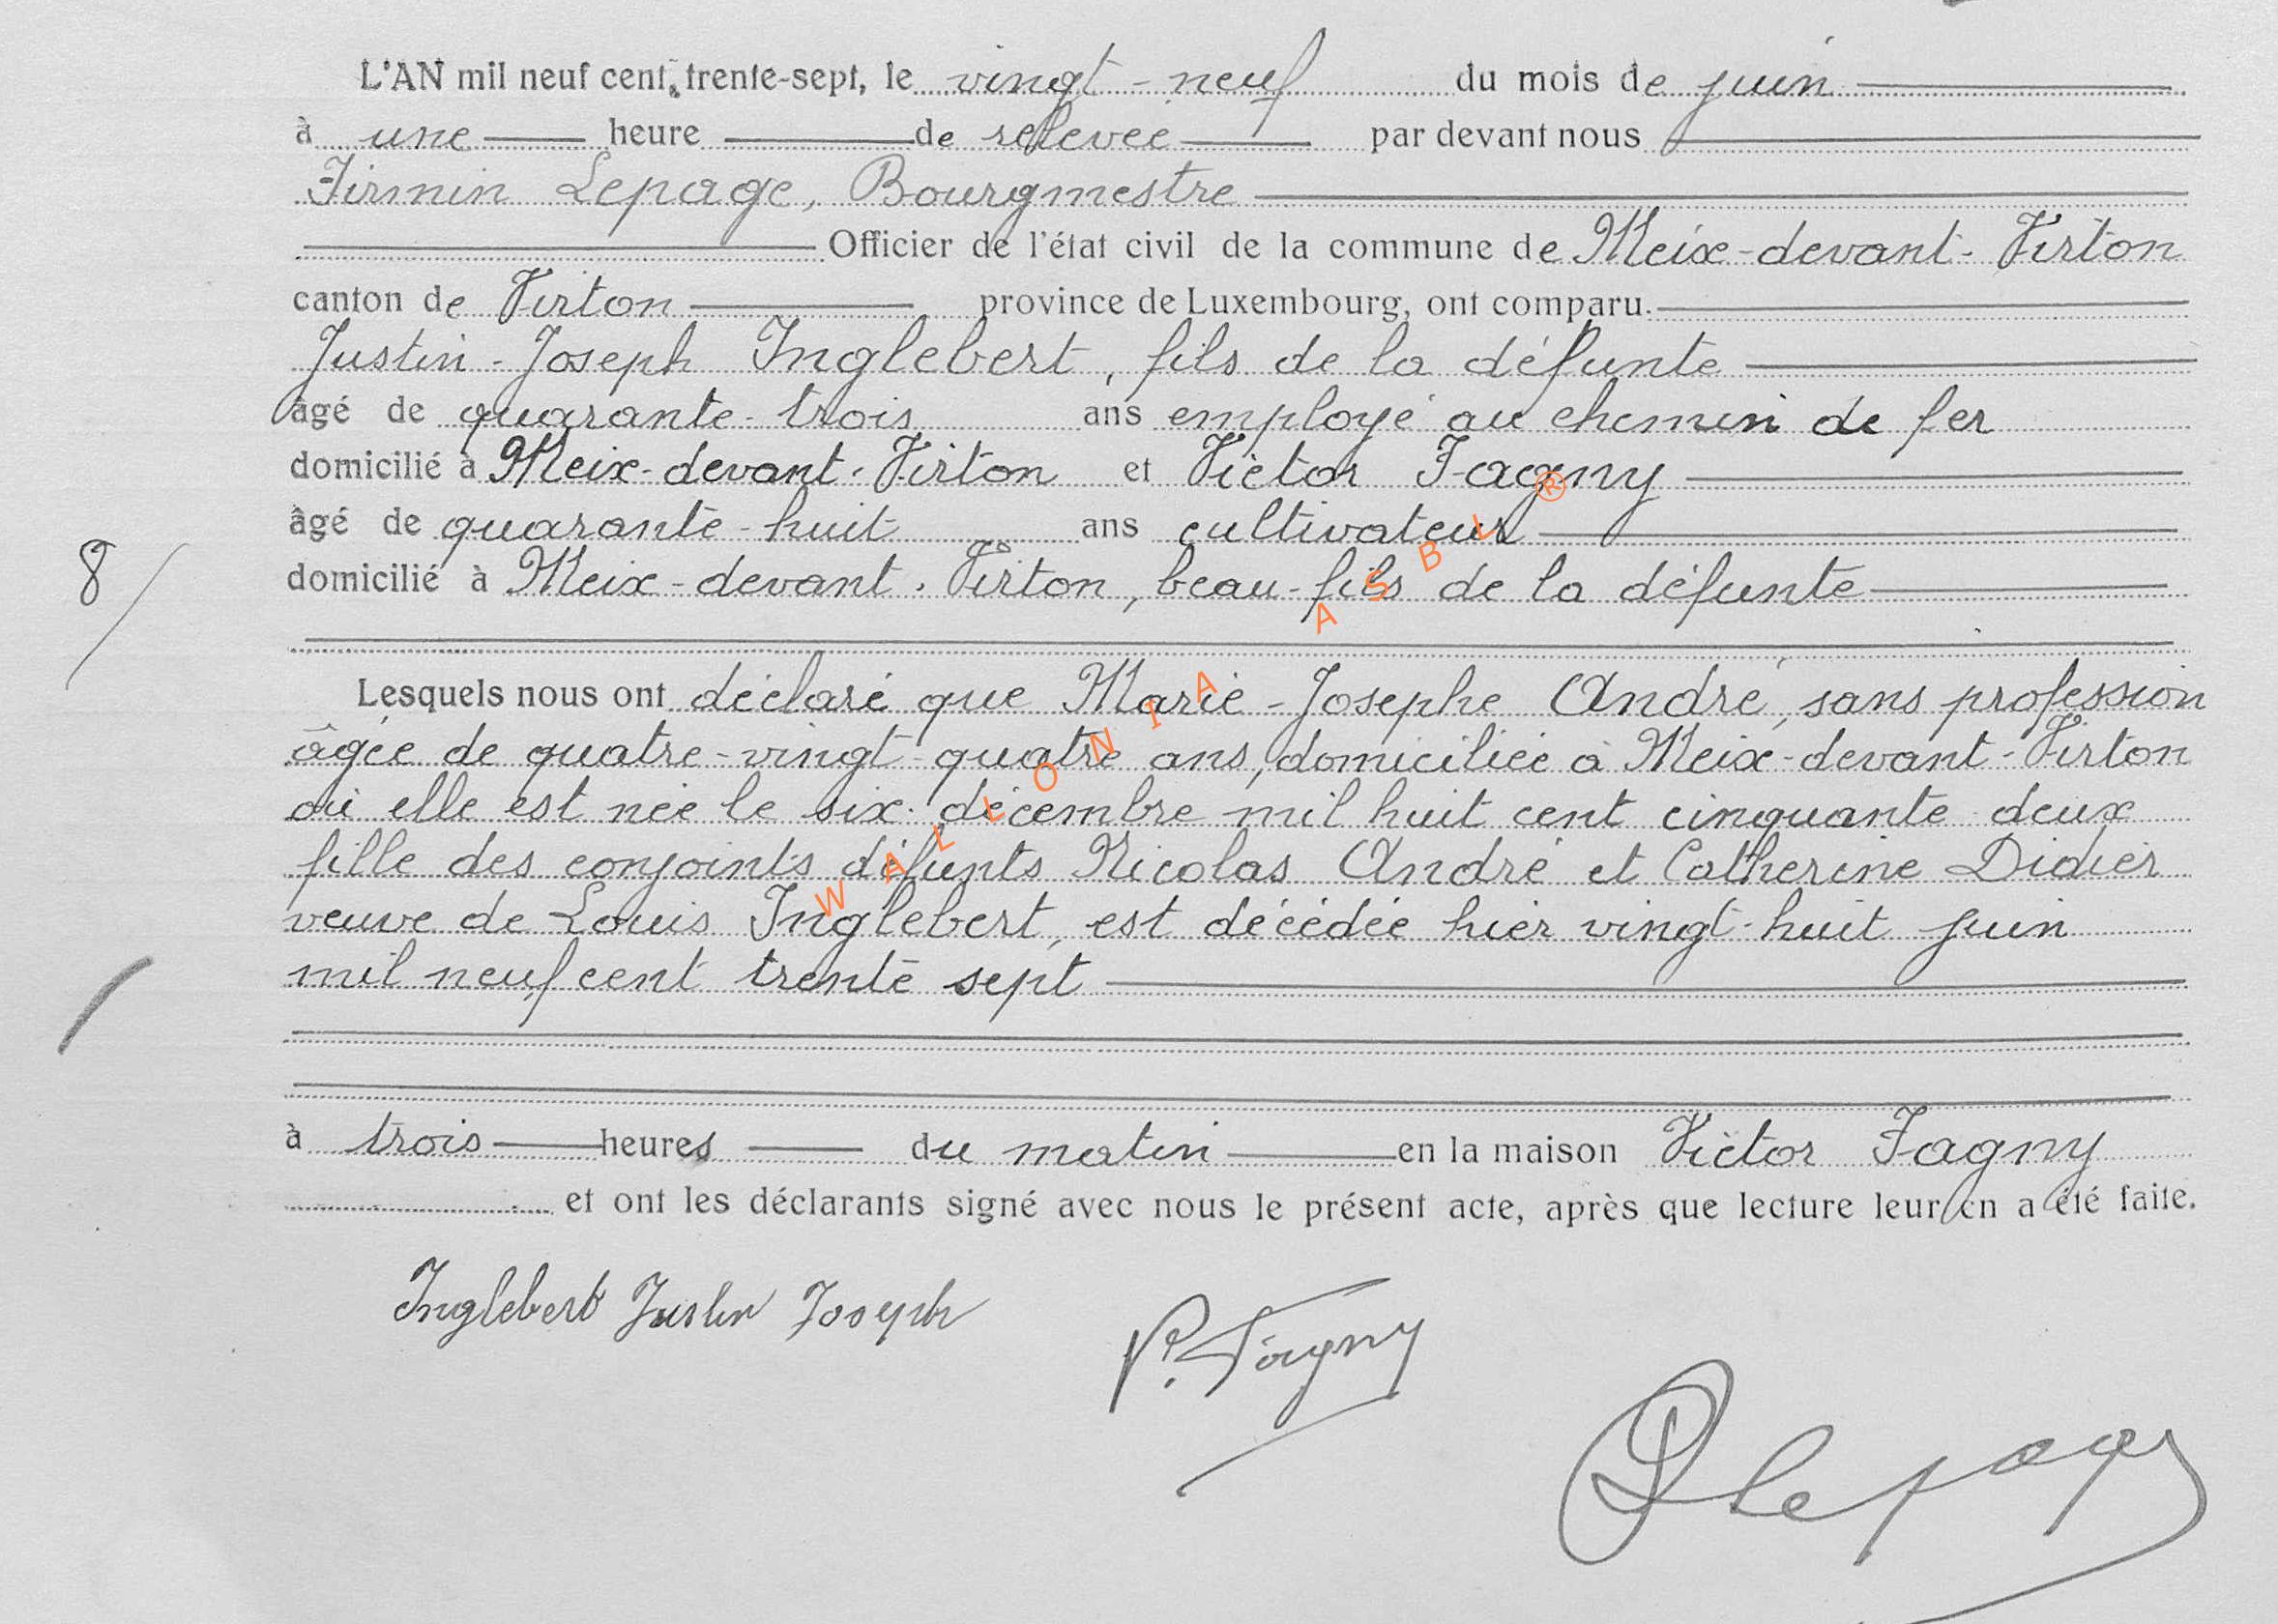 L'AN mil neuf cent trente-sept, le vingt-neuf du mois de juin
à une heure de relevée par devant nous
Firmin Lepage, Bourgmestre
Officier de l'état civil de la commune de Meix-devant-Virton
canton de Virton province de Luxembourg, ont comparu
Justin-Joseph Inglebert, fils de la défunte
âgé de quarante-trois ans employé au chemin de fer
domicilié à Meix-devant-Virton et Victor Fagny
âgé de quarante-huit ans cultivateur
8
domicilié à Meix-devant-Virton, beau-fils de la défunte
Lesquels nous ont déclaré que Marie-Josephe André, sans profession
âgée de quatre-vingt-quatre ans, domiciliée à Meix-devant-Virton
où elle est née le six décembre mil huit cent cinquante deux
fille des conjoints défunts Nicolas André et Catherine Didier
veuve de Louis Inglebert, est décédée hier vingt-huit juin
mil neuf cent trente sept
à trois heures du matin en la maison Victor Fagny
et ont les déclarants signé avec nous le présent acte, après que lecture leur en a été faite.
Inglebert Justin Joseph
V. Fagny
Lepage
WALLONIA ASBL ®